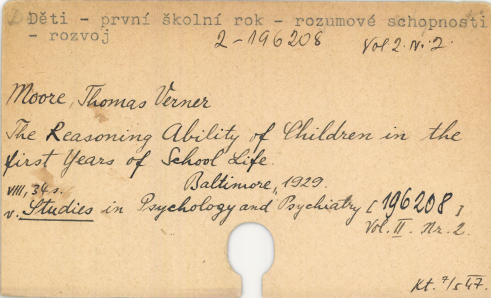 Děti - první školní rok - rozumové schopnosti
- rozvoj
2-196208 Vol 2. Nr. 2.
Moore, Thomas Verner
The Reasoning Ability of Children in the
first Years of School Life.
Baltimore, 1929.
VIII, 34 s.
v. Studies in Psychology and Psychiatry [196208]
Vol. II. Nr. 2.
Kt. 7/5 47.